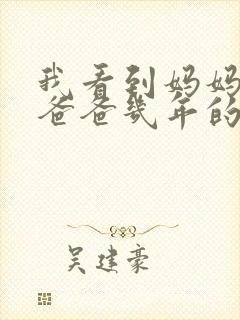 我看到妈妈
爸爸几年的
吴建豪